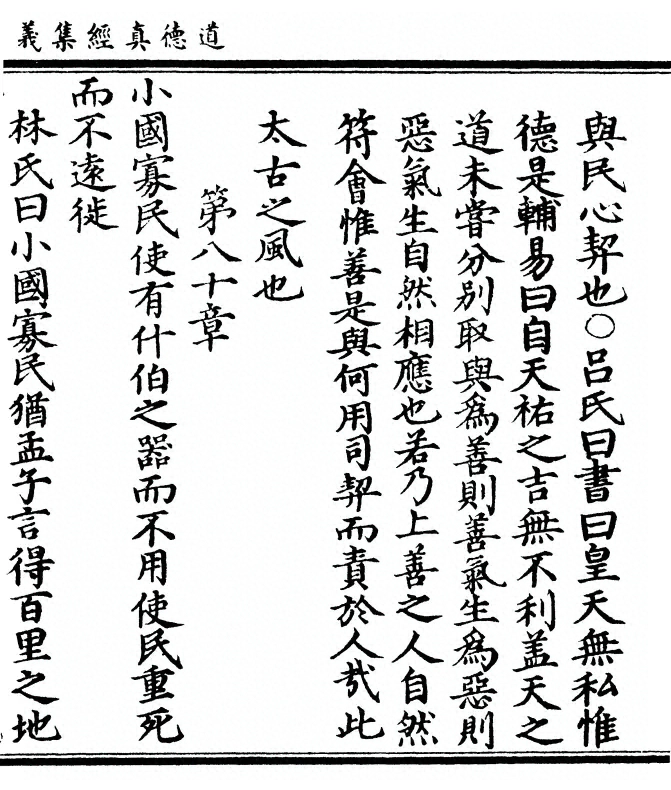 道德真經集義
與民心契也○呂氏曰書曰皇天無私惟
德是輔易曰自天祐之吉無不利蓋天之
道未嘗分别取與為善則善氣生為惡則
惡氣生自然相應也若乃上善之人自然
符會惟善是與何用司契而責於人哉此
太古之風也
第八十章
小國寡民使有什伯之器而不用使民重死
而不遠徙
林氏曰小國寡民猶孟子言得百里之地